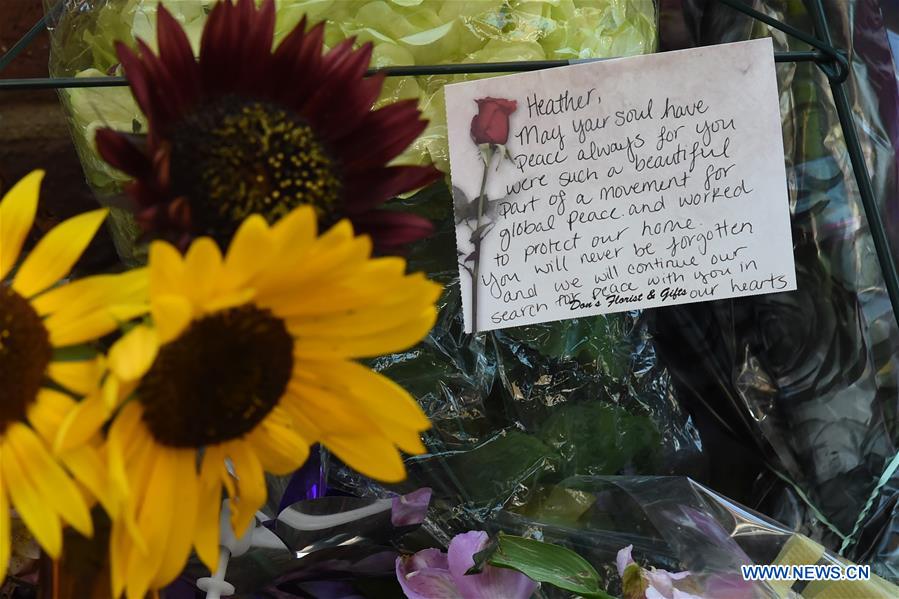 Heather,
May your soul have
peace always for you
were such a beautiful
part of a movement for
global peace and worked
to protect our home.
You will never be forgotten
and we will continue our
search for peace with you in
our hearts
Don's Florist & Gifts
WWW.NEWS.CN